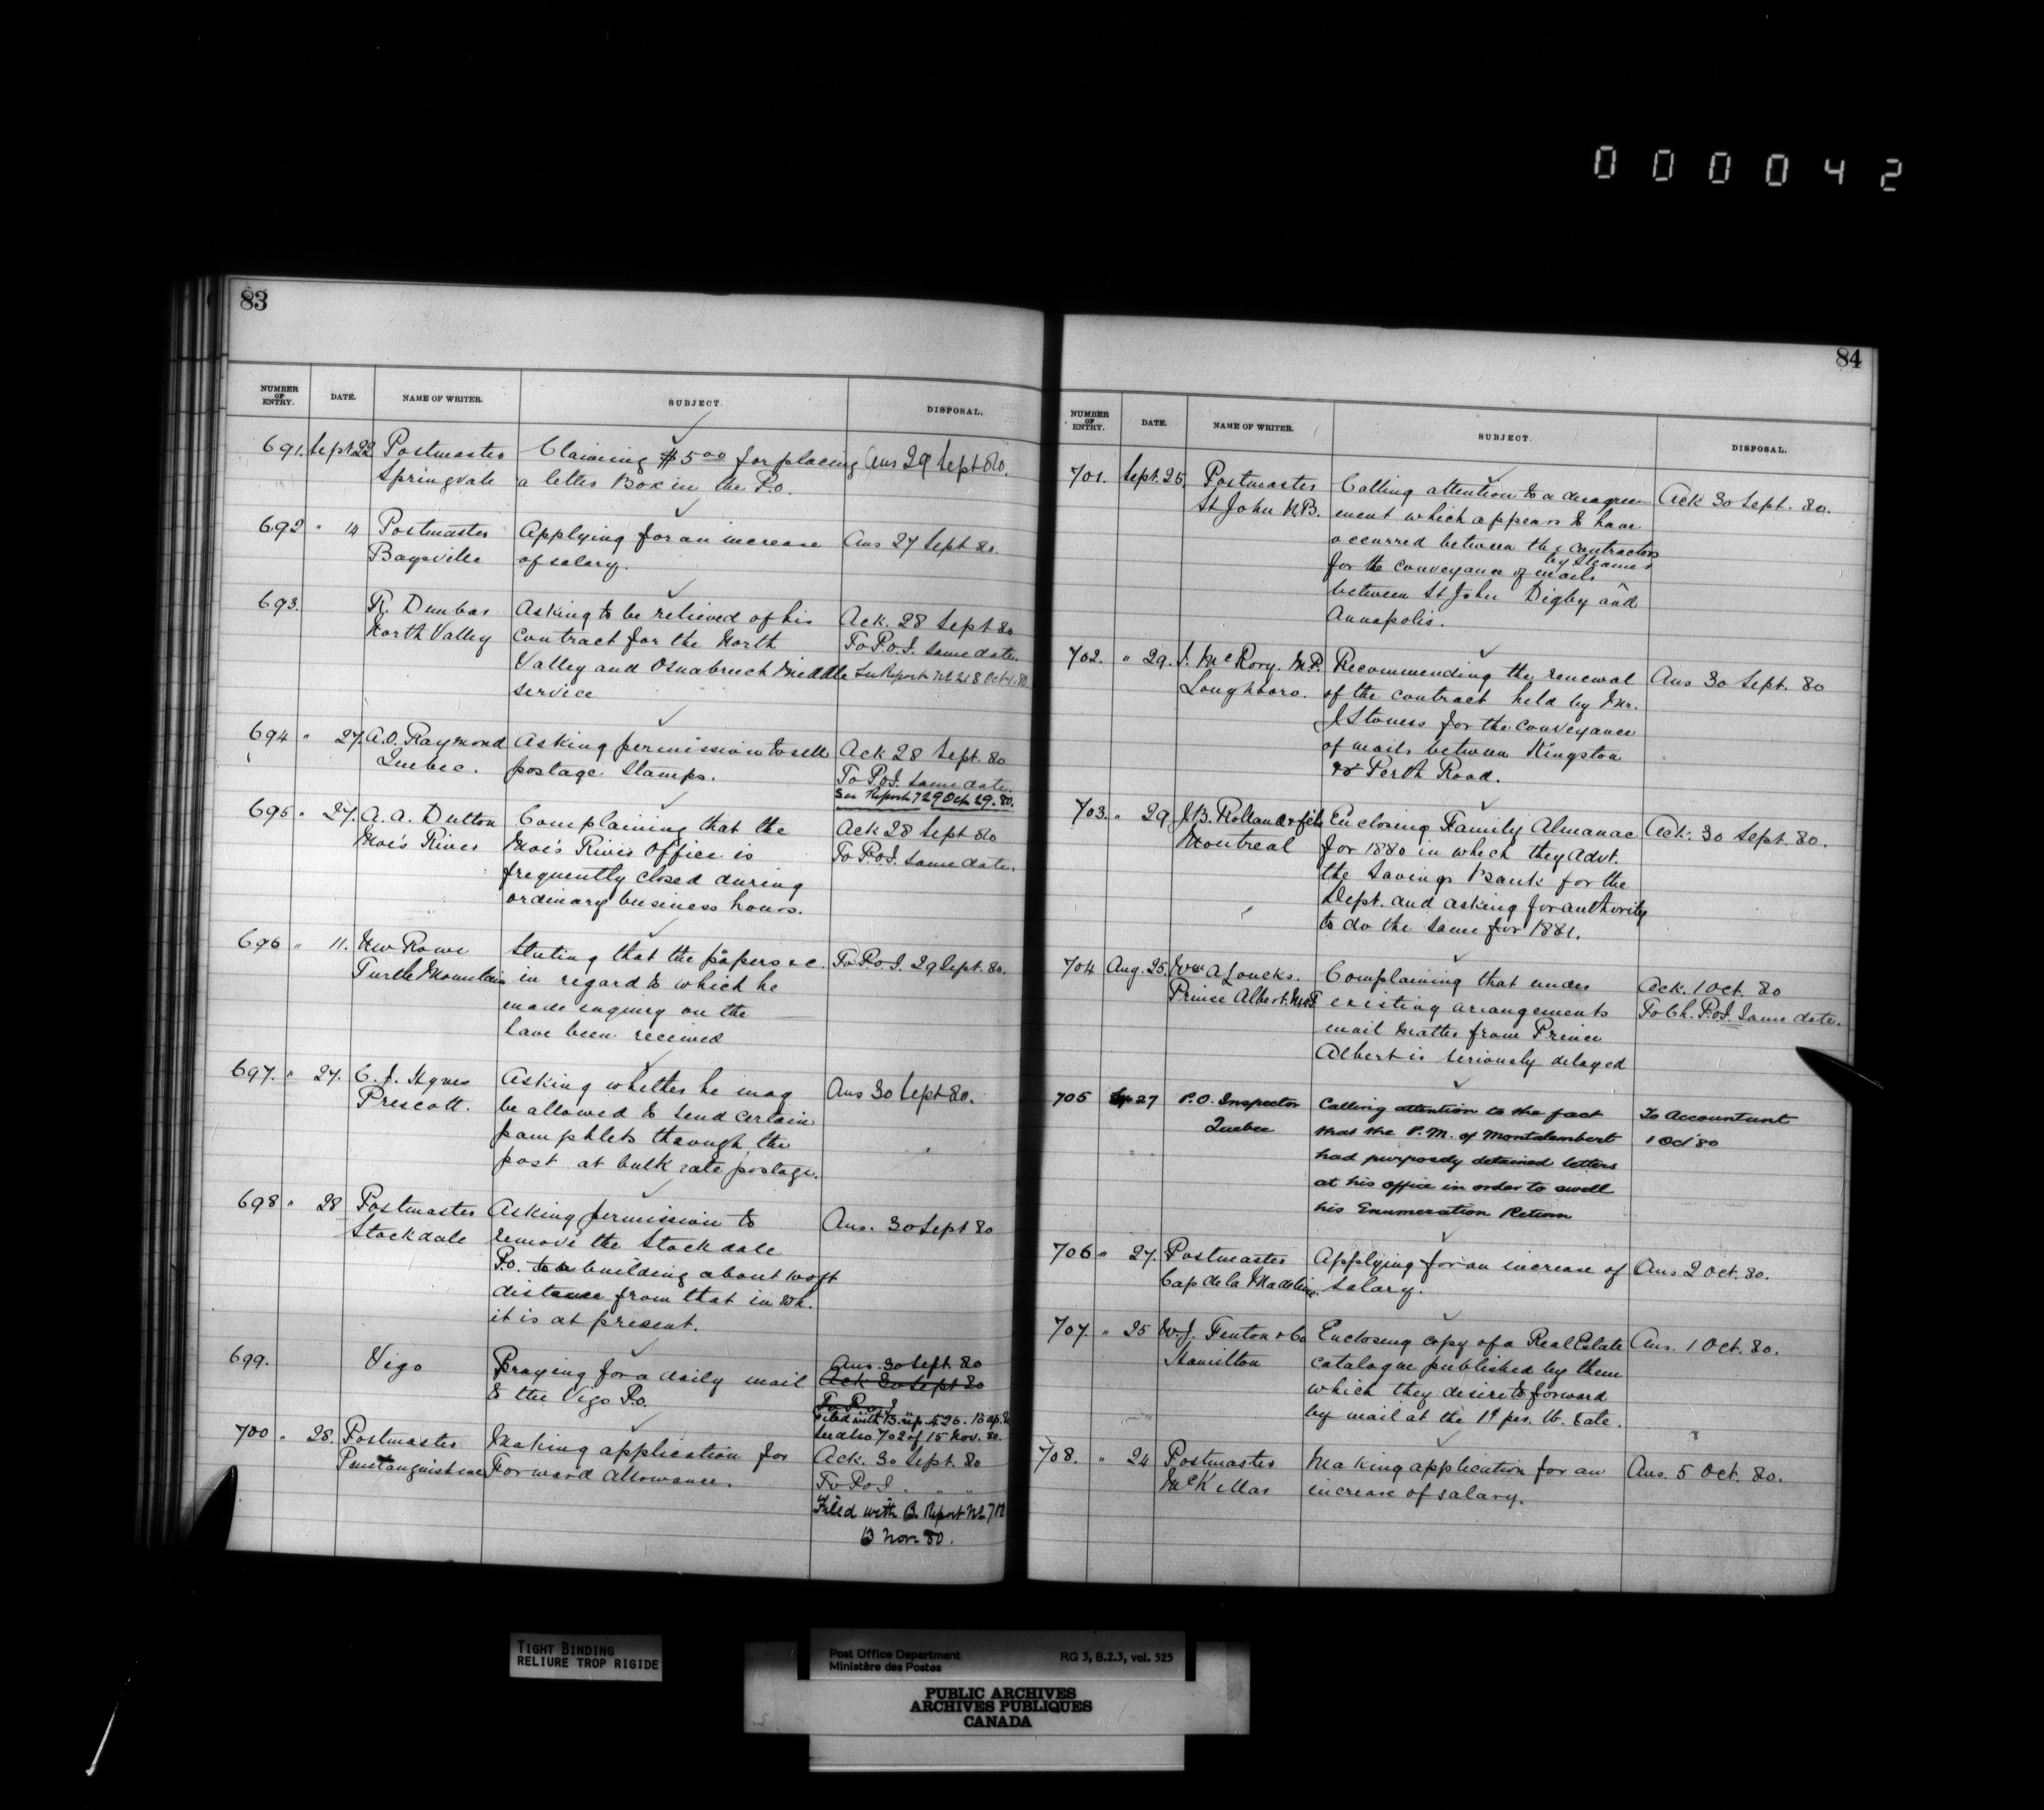 000042
83
NUMBER OF ENTRY. DATE. NAME OF WRITER. SUBJECT. DISPOSAL.
691. Sept 22 Postmaster Claiming $5.00 for placing Ans 29 Sept 80.
Springvale a letter Box in the P.O.
692 " 14 Postmaster Applying for an increase Ans 27 Sept 80.
Baysville of salary.
693. R. Dunbar Asking to be relieved of his Ack. 28 Sept 80
North Valley contract for the North To P.O.I. same date.
Valley and Osnabruck Middle See Report No 218 Oct 80.
service
694 " 27. A.O. Raymond Asking permission to sell Ack 28 Sept. 80
Quebec. postage Stamps. To P.O.I. same date.
See Report 729 29.80.
695 " 27. A. A. Dutton Complaining that the Ack 28 Sept 80
Moe's River Moe's River Office is To P.O.I. same date.
frequently closed during
ordinary business hours.
696 " 11. Wm Rowe Stating that the papers &c. To P.O.I. 29 Sept. 80.
Turtle Mountain in regard to which he
made inquiry on the
have been received
697. " 27. C. J. Hynes Asking whether he may Ans 30 Sept 80.
Prescott. be allowed to send certain
pamphlets through the
post at bulk rate postage.
698 " 28 Postmaster Asking permission to Ans. 30 Sept 80
Stockdale remove the Stockdale
P.O. to a building about 100 ft
distance from that in wh.
it is at present.
699. Vigo Praying for a daily mail Ans. 30 Sept 80
to the Vigo P.O. Ack 30 Sept 80
To P.O.I
Filed with B. rep. 426.
See also 702 of 15 Nov. 80.
700 " 28. Postmaster Making application for Ack. 30 Sept. 80
Penetanguishene Forward Allowance. To P.O.I. " "
Filed with B. Report No 700
13 Nov 80.
84
NUMBER OF ENTRY. DATE. NAME OF WRITER. SUBJECT. DISPOSAL.
701. Sept. 25. Postmaster Calling attention to a disagree- Ack 30 Sept. 80.
St John N.B. ment which appears to have
occurred between the contractors
for the conveyance of mails by Steamer
between St John Digby and
Annapolis.
702. " 29. J. McRory. M.P. Recommending the renewal Ans 30 Sept. 80
Loughboro. of the contract held by Mr.
J Stoness for the conveyance
of mails between Kingston
& Perth Road.
703. " 29 J.B. Rolland & fils Enclosing Family Almanac Ack. 30 Sept. 80.
Montreal for 1880 in which they Advt.
the Savings Bank for the
Dept. and asking for authority
to do the same for 1881.
704 Aug. 25. Wm A Loucks. Complaining that under Ack. 1 Oct. 80
Prince Albert. N.W.T existing arrangements To Ch. P.O.I. Same date.
mail matter from Prince
Albert is seriously delayed
705 Sep 27 P.O. Inspector Calling attention to the fact To Accountant
Quebec that the P.M. of Montalembert 1 Oct 80
had purposely detained letters
at his office in order to swell
his Enumeration Return
706 " 27. Postmaster Applying for an increase of Ans 2 Oct. 80.
Cap de la Madeleine. salary.
707. " 25 W.J. Fenton & Co Enclosing copy of a Real Estate Ans. 1 Oct. 80.
Hamilton catalogue published by them
which they desire to forward
by mail at the 1¢ per. lb. rate.
708. " 24 Postmaster Making application for an Ans. 5 Oct. 80.
McKellar increase of salary.
TIGHT BINDING
RELIURE TROP RIGIDE
Post Office Department RG 3, B.2.3, vol. 525
Ministère des Postes
PUBLIC ARCHIVES
ARCHIVES PUBLIQUES
CANADA